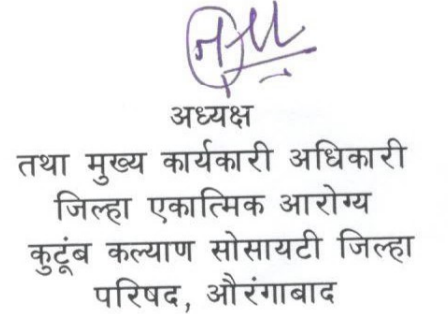 अध्यक्ष
तथा मुख्य कार्यकारी अधिकारी
जिल्हा एकात्मिक आरोग्य
कुटूंब कल्याण सोसायटी जिल्हा
परिषद, औरंगाबाद